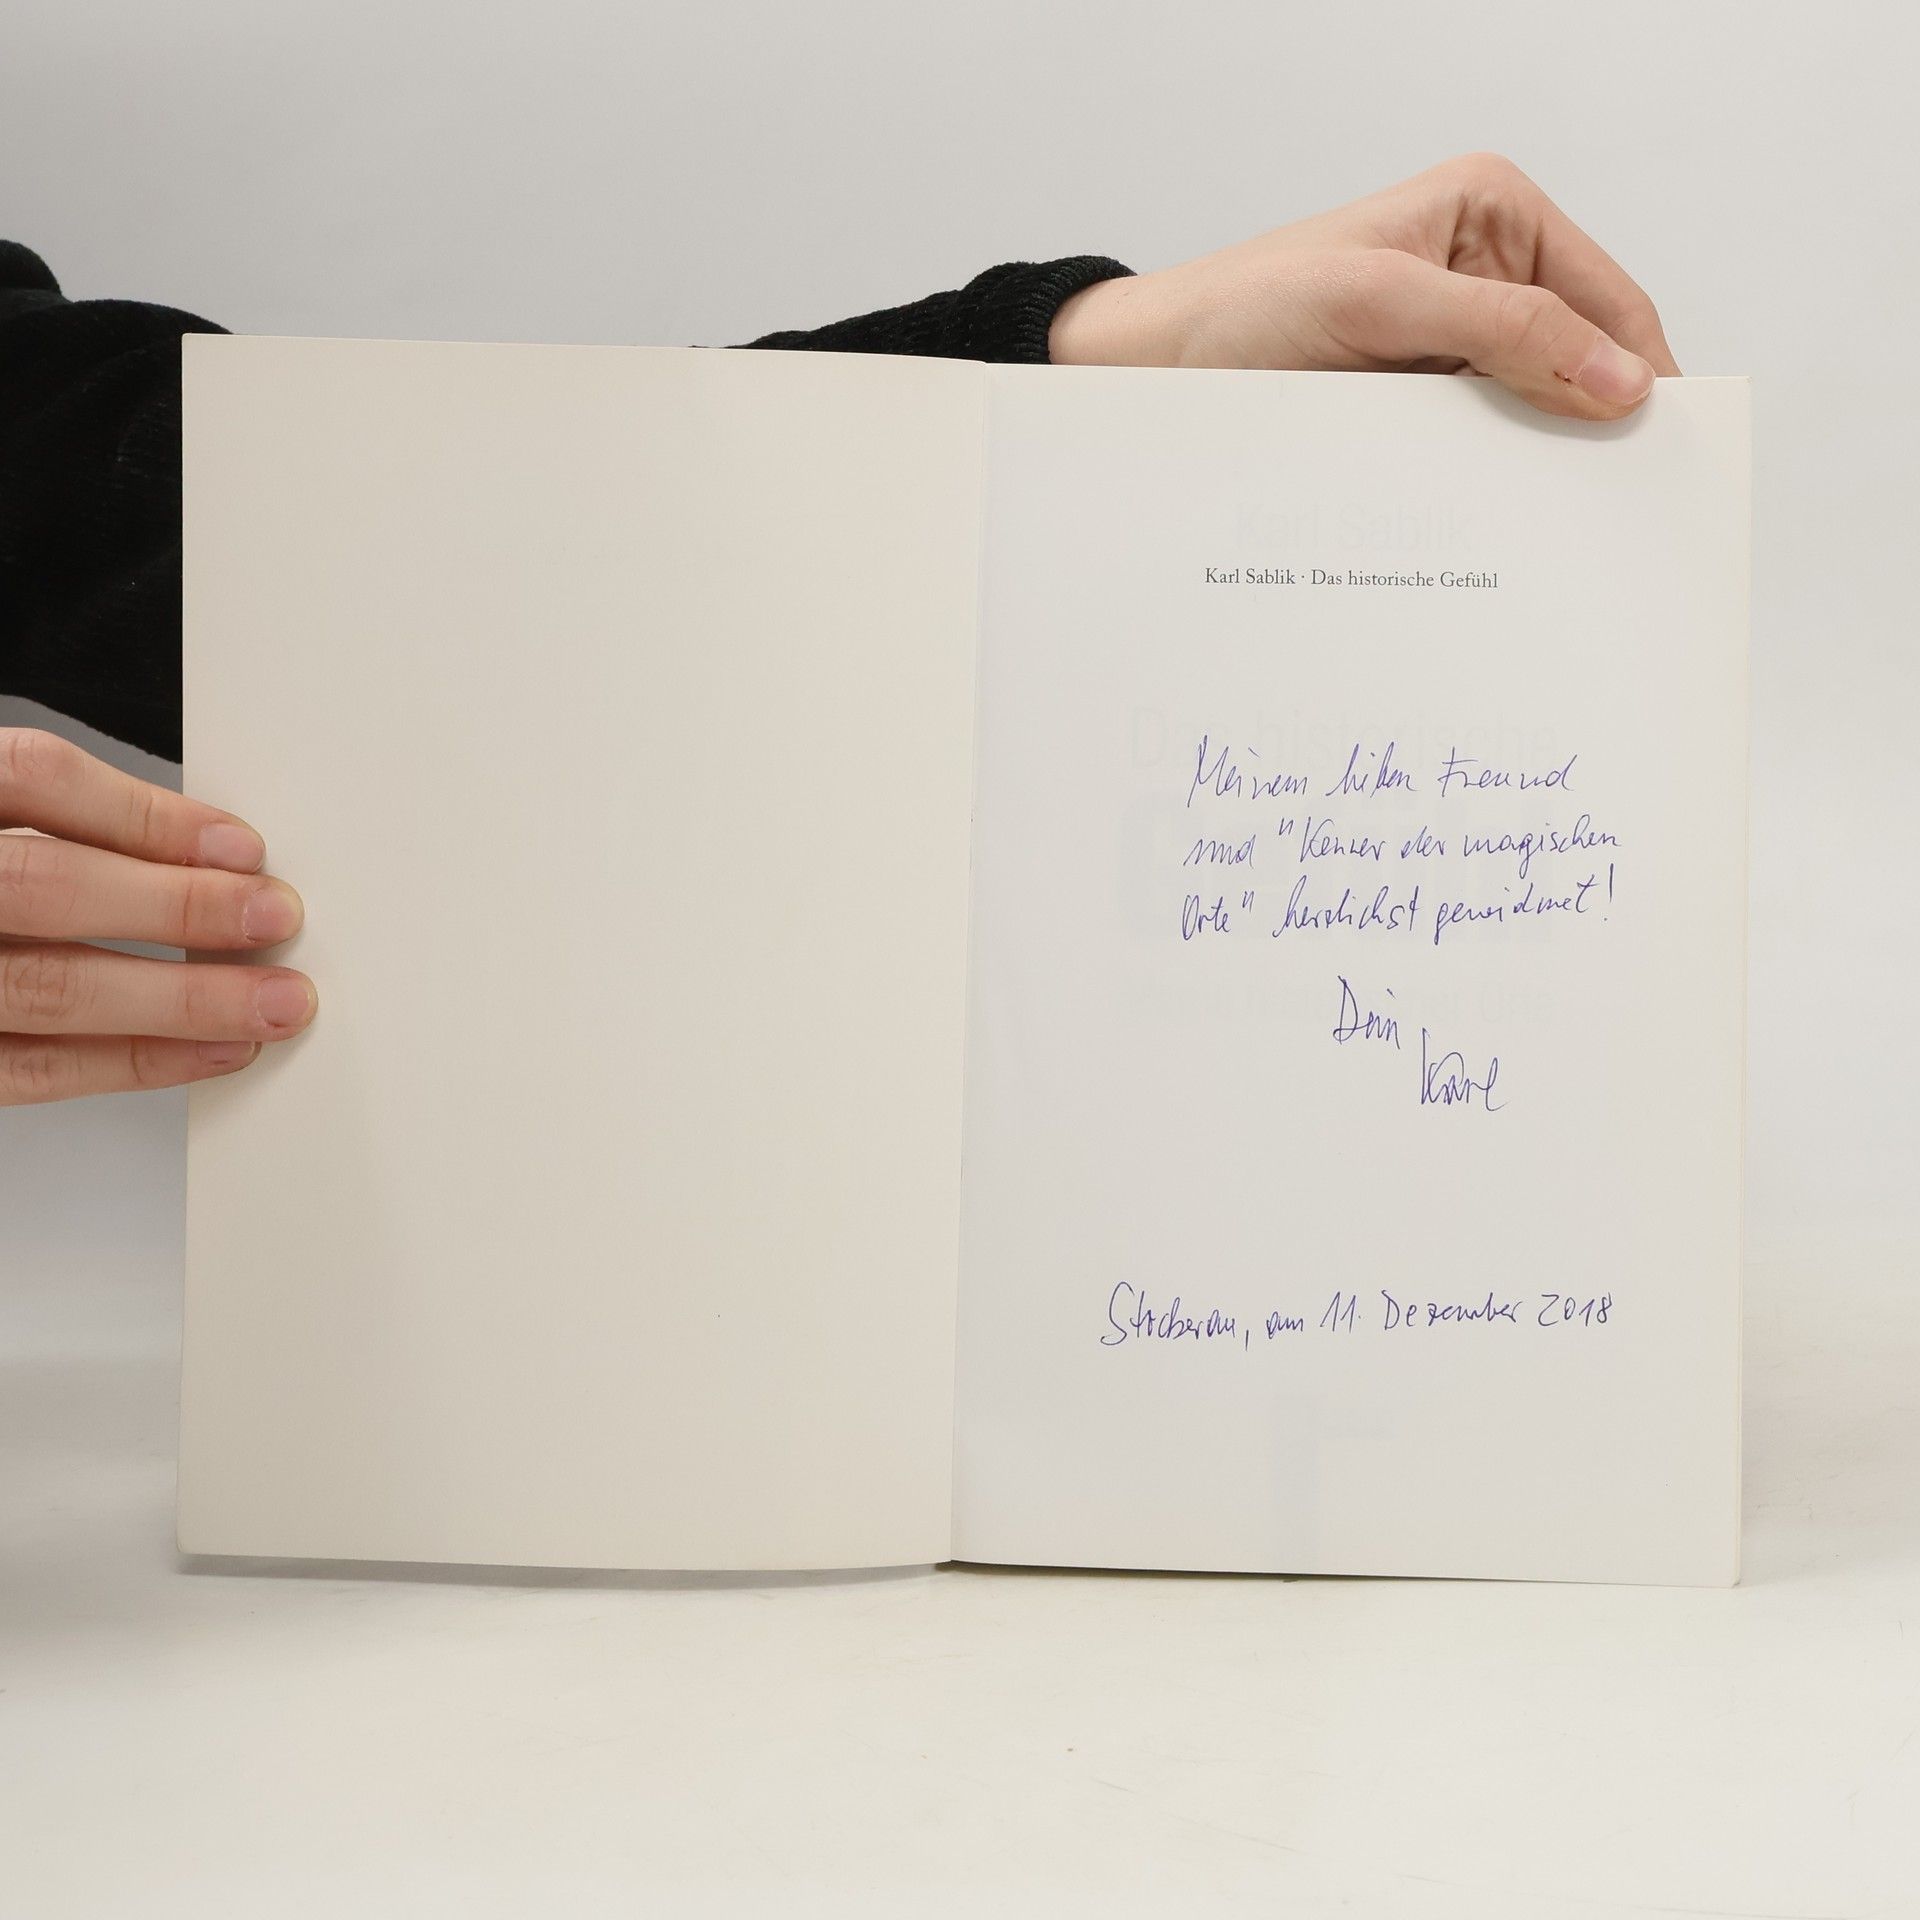 Karl Sablik · Das historische Gefühl
Meinem lieben Freund
und "Kenner der magischen
Orte" herzlichst gewidmet!
Dein
Karl
Stockerau, am 11. Dezember 2018